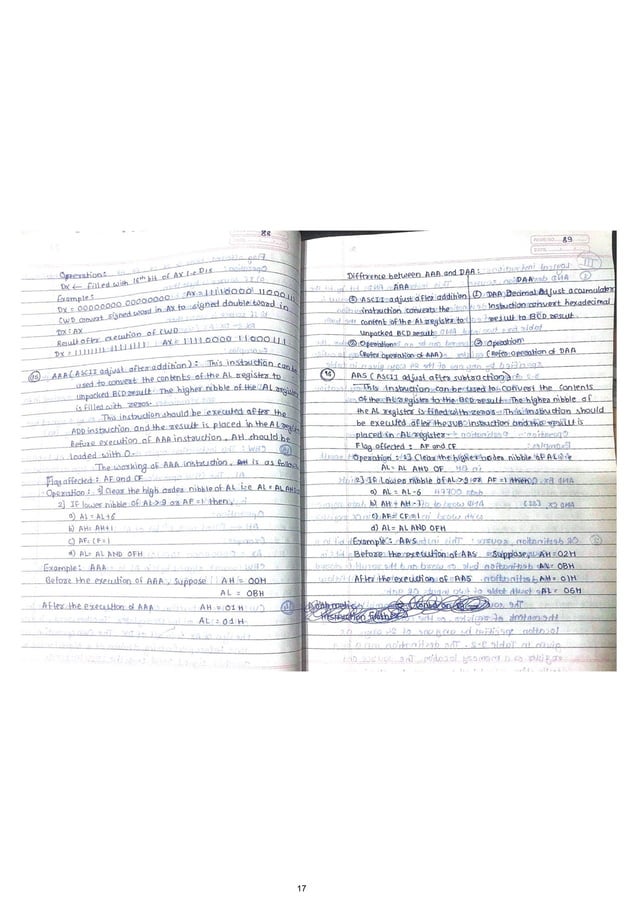 88
Operation:
DX ← filled with 16th bit of AX i.e D15
Example:
DX = 00000000 00000000 AX = 11110000 11000111
CWD convert signed word in AX to signed double word in
DX:AX
Result after execution of CWD
DX = 11111111 11111111 AX = 11110000 11000111
AAA (ASCII adjust after addition): This instruction can be
used to convert the contents of the AL register to
unpacked BCD result. The higher nibble of the AL register
is filled with zeros.
This instruction should be executed after the
ADD instruction and the result is placed in the AL register
Before execution of AAA instruction, AH should be
loaded with 0.
The working of AAA instruction, is as follows
Flag affected: AF and CF
Operation: 1) Clear the high order nibble of AL i.e AL = AL AND
2) If lower nibble of AL > 9 or AF = 1 then,
a) AL = AL+6
b) AH = AH+1
c) AF = CF = 1
d) AL = AL AND 0FH
Example: AAA
Before the execution of AAA, suppose AH = 00H
AL = 0BH
After the execution of AAA AH = 01H
AL = 01H
89
Difference between AAA and DAA:
AAA DAA
① ASCII adjust after addition ① DAA Decimal Adjust accumulator
instruction converts the Instruction convert hexadecimal
content of the AL register to result to BCD result.
unpacked BCD result
② Operation ② Operation
(Refer operation of AAA) (Refer operation of DAA
AAS (ASCII adjust after subtraction):
This instruction can be used to convert the contents
of the AL register to the BCD result. The higher nibble of
the AL register is filled with zeros. This instruction should
be executed after the SUB instruction and the result is
placed in AL register
Flag affected: AF and CF
Operation: 1) Clear the higher order nibble of AL i.e
AL = AL AND 0F
2) If Lower nibble of AL > 9 or AF = 1 then,
a) AL = AL-6
b) AH = AH-1
c) AF = CF = 1
d) AL = AL AND 0FH
Example: AAS
Before the execution of AAS Suppose, AH = 02H
AL = 0BH
After the execution of AAS AH = 01H
AL = 06H
17